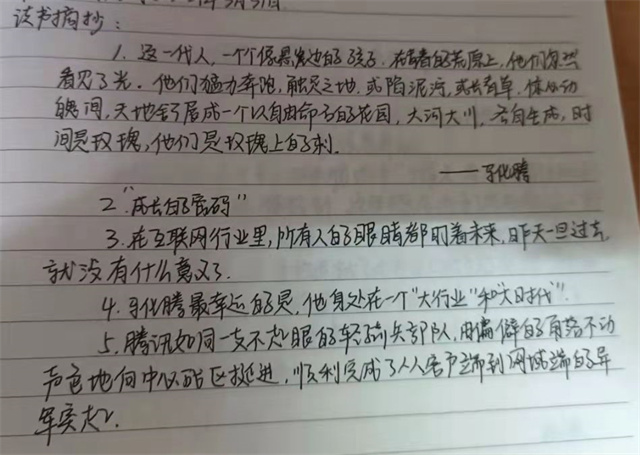 年3月31日
读书摘抄:
1. 这一代人,一个个像悬崖边的孩子。在青春的荒原上,他们忽然
看见了光。他们猛力奔跑,触足之地,或陷泥污,或长青草,体外动
魄间,天地舒展成一个以自由命名的花园,大河大川,各自生成,时
间是玫瑰,他们是玫瑰上的刺。
——马化腾
2“成长的密码”
3. 在互联网行业里,所有人的眼睛都盯着未来,昨天一旦过去,
就没有什么意义了.
4. 马化腾最幸运的是,他身处在一个“大行业”和“大时代”.
5. 腾讯如同一支不起眼的轻骑兵部队,由偏僻的角落不动
声色地向中心战区挺进,顺利完成了从客户端到网域端的异
军突起.